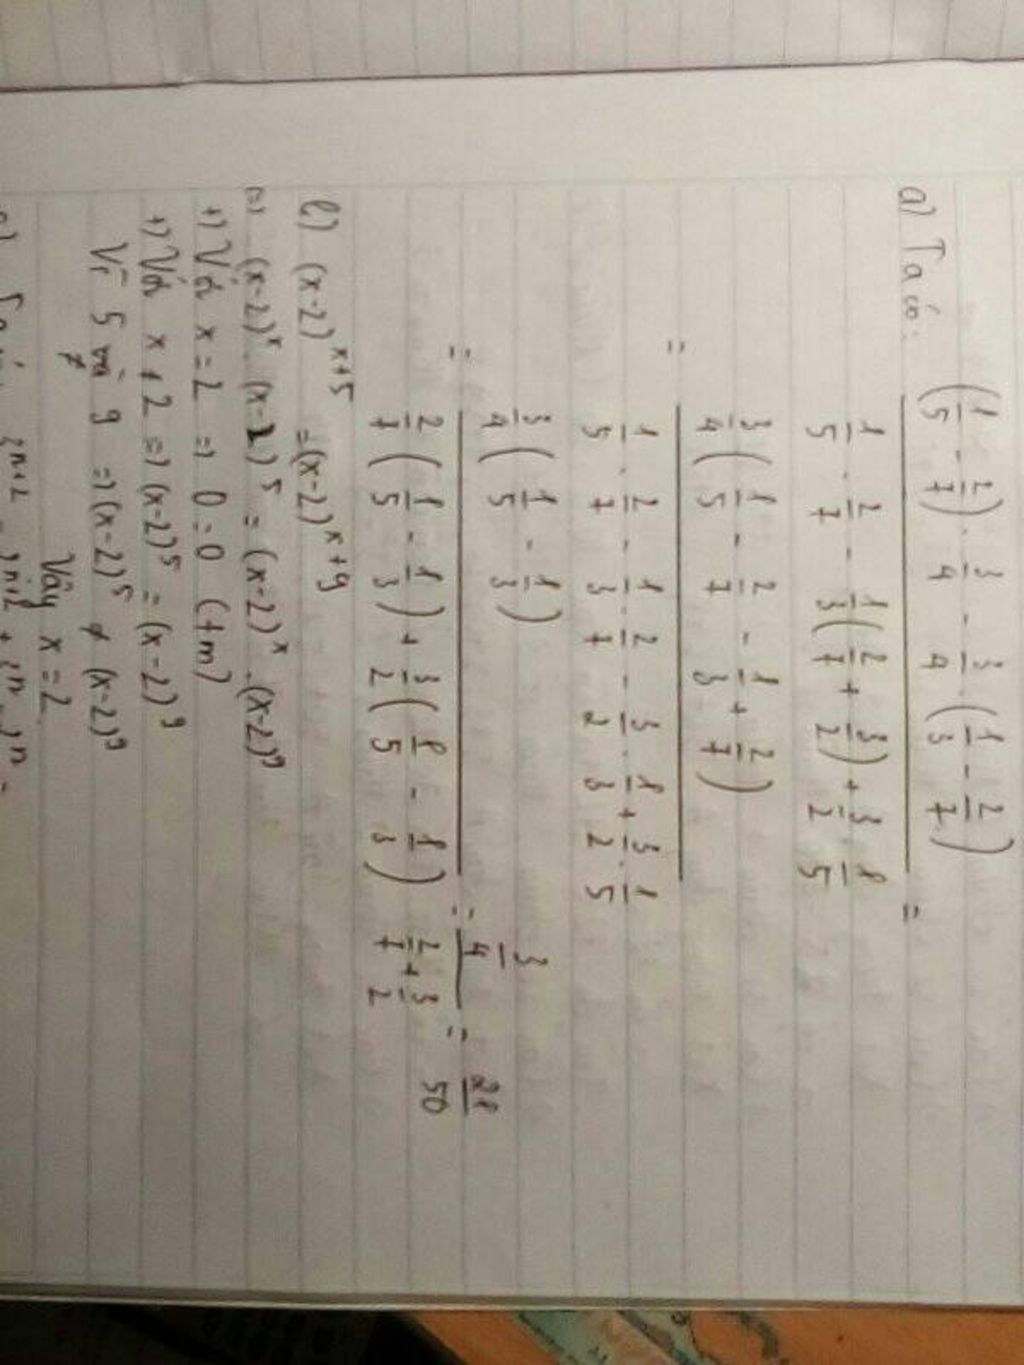 a) Ta có: (1/5 - 2/7) . 3/4 - 3/4 . (1/3 - 2/7)
1/5 . 2/7 - 1/3 (2/7 + 3/2) + 3/2 . 1/5 =
= 3/4 (1/5 - 2/7 - 1/3 + 2/7)
1/5 . 2/7 - 1/3 . 2/7 - 3/2 . 1/3 + 3/2 . 1/5
= 3/4 (1/5 - 1/3)
2/7 (1/5 - 1/3) + 3/2 (1/5 - 1/3) = 3/4 / 2/7 + 3/2 = 21/50
b) (x-2)^x+5 = (x-2)^x+9
=) (x-2)^x . (x-2)^5 = (x-2)^x . (x-2)^9
+) Với x = 2 =) 0 = 0 (tm)
+) Với x ≠ 2 =) (x-2)^5 = (x-2)^9
Vì 5 ≠ 9 =) (x-2)^5 ≠ (x-2)^9
Vậy x = 2